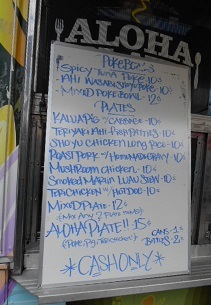 ALOHA
POKE BOWLS
SPICY TUNA POKE - 10$
- AHI WASABI SHOYU POKE - 10$
- MIXED POKE BOWL - 12$
PLATES
KALUA PIG w/ CABBAGE - 10$
TERIYAKI AHI - 10$
SHOYU CHICKEN LONG RICE - 10$
ROAST PORK w/ HOMEMADE GRAVY - 10$
MUSHROOM CHICKEN - 10$
SMOKED MARLIN LUAU STEW - 10$
TERI CHICKEN HOT DOG - 10$
MIXED PLATE - 12$
(MIX ANY 2
ALOHA PLATE!! 15$
(POKE, PIG, TERI CHICKEN)
CANS - 1$
BOTTLES - 2$
*CASH ONLY*